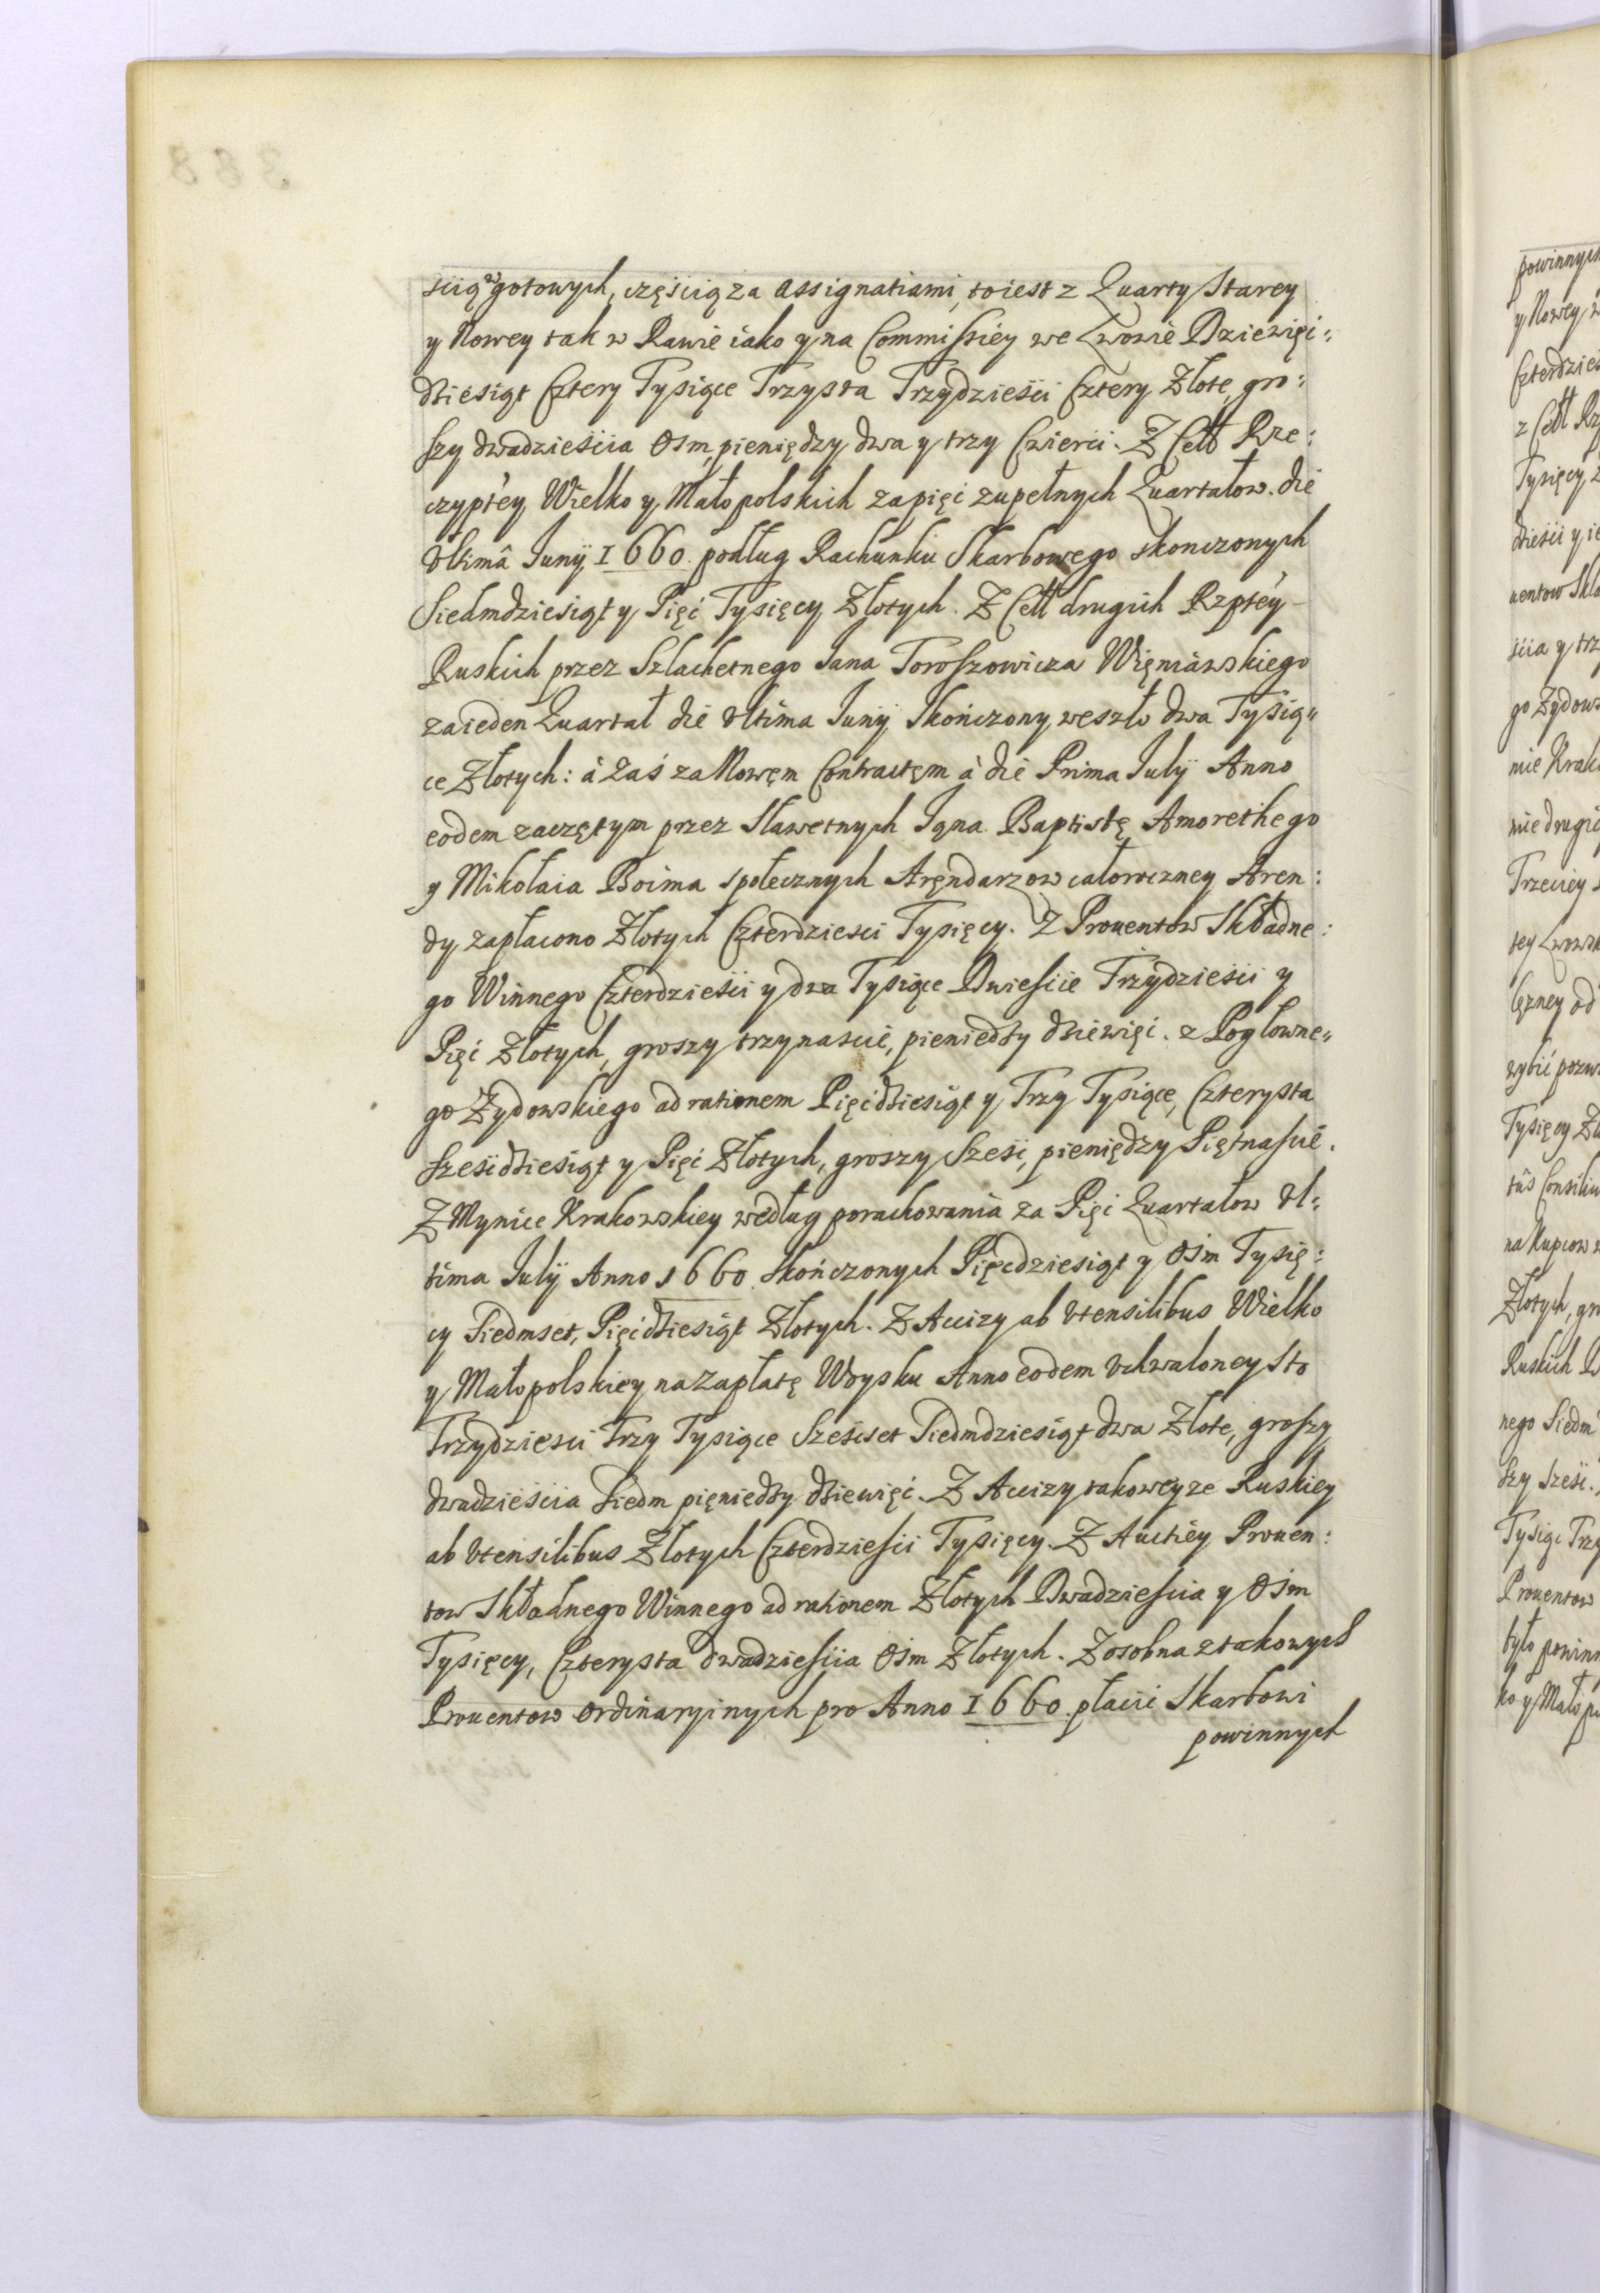 scią w gotowych, częścią za Assignatiami, to iest z Quarty Starey
y Nowey tak w Rawie iako y na Commissiey we Lwowie Dziewięć:
dziesiąt Cztery Tysiące Trzysta Trzydzieści Cztery Złote, gro:
szy dwadzieścia Osm, pieniędzy dwa y trzy Czwierci. Z Cełł Rze:
czyptey Wielko y Małopolskich za pięć zupełnych Quartałow die
Vltimâ Junÿ 1660. podług Rachunku Skarbowego skonczonych
Siedmdziesiąt y Pięć Tysięcy Złotych. Z Cełł drugich Rzptey
Ruskich przez Szlachetnego Jana Toroszowicza Więniawskiego
za ieden Quartał die Vltima Junÿ Skończony weszło dwa Tysią"
ce Złotych: à Zaś za Nowęm Contractęm à die Prima Julÿ Anno
eodem zaczętym przez Sławetnych Jana Baptistę Amorethego
y Mikołaia Boima społecznych Aręndarzow całoroczney Aren:
dy zapłacono Złotych Czterdziesci Tysięcy. Z Prouentow Składne:
go Winnego Czterdzieści y dwa Tysiące Dwieście Trzydzieści y
Pięć Złotych, groszy trzynascie, pieniedzy dziewięć. z Pogłowne"
go Zydowskiego ad rationem Pięćdziesiąt y Trzy Tysiące, Czterysta
Sześćdziesiąt y Pięć Złotych, groszy Sześć, pieniędzy Piętnaście.
Z Mynice Krakowskiey według porachowania za Pięć Quartałow Vl:
tima Julÿ Anno 1660. Skończonych Pięćdziesiąt y Ośm Tysię:
cy Siedmset, Pięćdziesiąt Złotych. Z Accizy ab Vtensilibus Wielko
y Małopolskiey na Zapłatę Woysku Anno eodem Vchwaloney Sto
Trzydziesci Trzy Tysiące Sześćset Siedmdziesiąt dwa Złote, groszy
dwadzieścia Siedm pięniedzy dziewięć. Z Accizy takoweyze Ruskiey
ab Vtensilibus Złotych Czterdzieści Tysięcy. Z Auctiey Prouen:
tow Składnego Winnego ad rationem Złotych Dwadzieścia y Ośm
Tysięcy, Czterysta dwadzieścia Ośm Złotych. Z osobna z takowych
Prouentow Ordinaryinych pro Anno 1660. płacić Skarbowi
powinnych